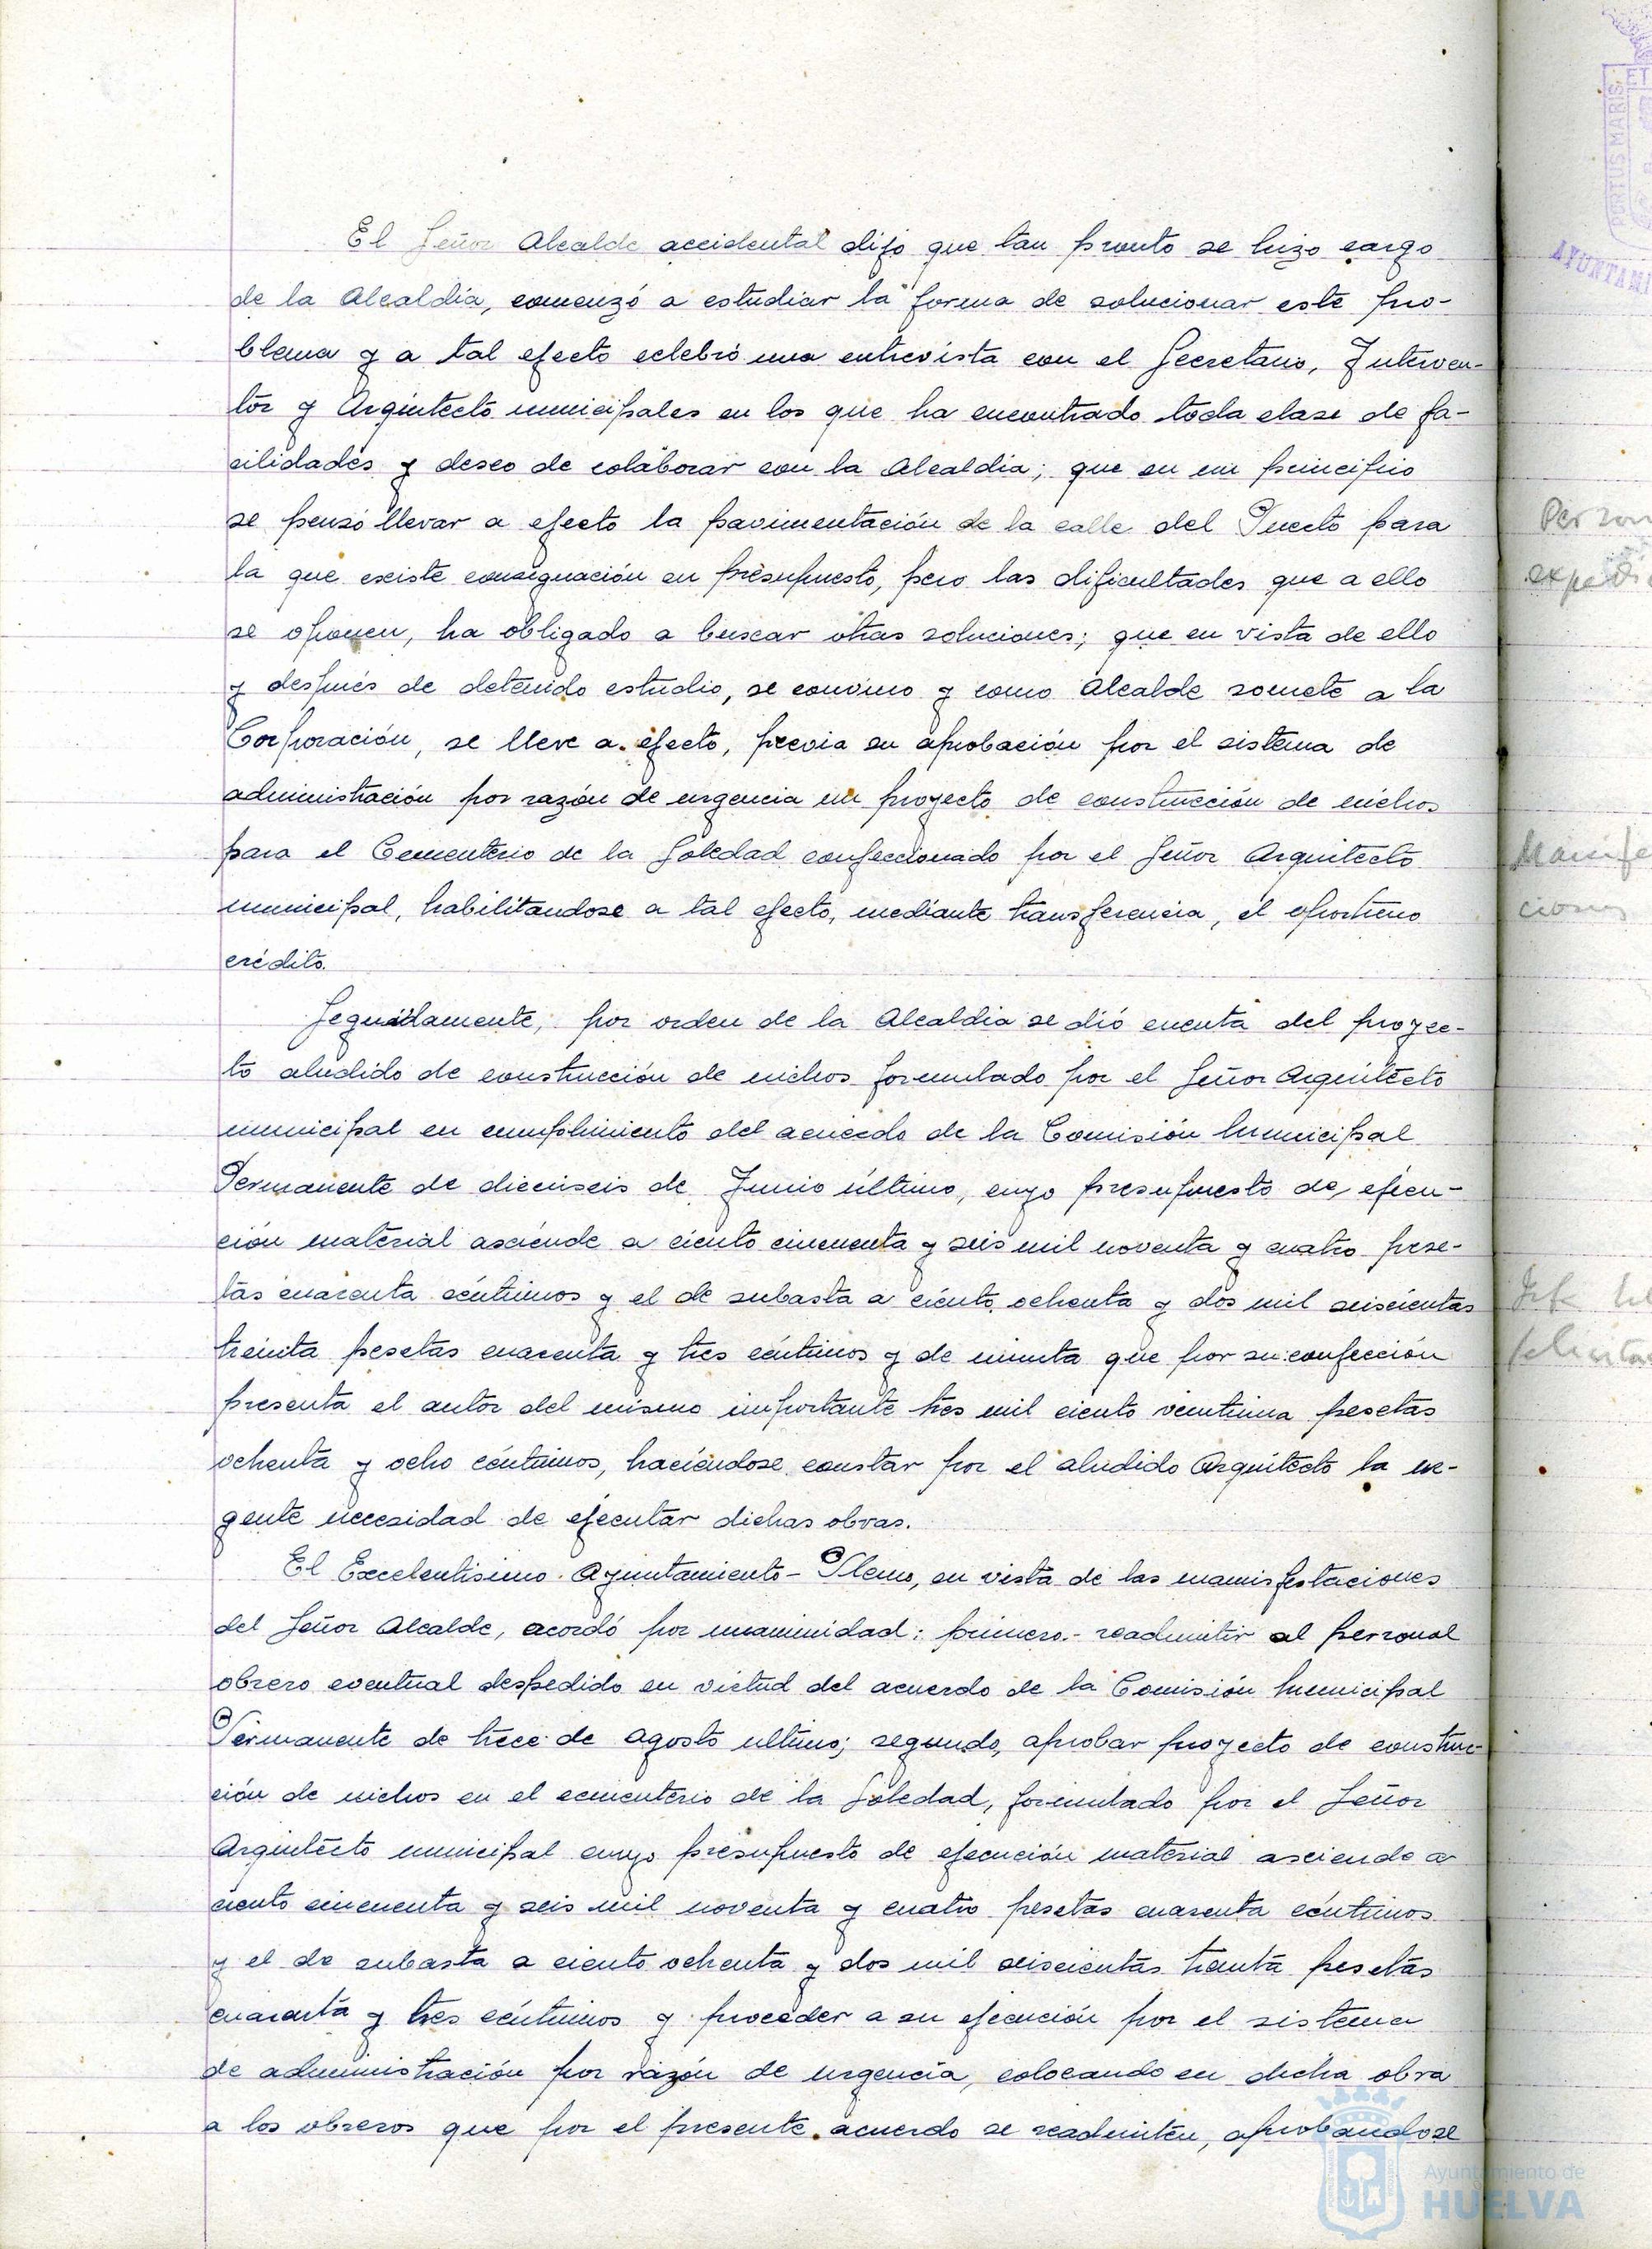 El Señor Alcalde accidental dijo que tan pronto se hizo cargo
de la Alcaldía, comenzó a estudiar la forma de solucionar este pro-
blema y a tal efecto celebró una entrevista con el Secretario, Interven-
tor y Arquitecto municipales en los que ha encontrado toda clase de fa-
cilidades y deseo de colaborar con la Alcaldia; que en un principio
se pensó llevar a efecto la pavimentación de la calle del Puerto para
la que existe consignación en presupuesto, pero las dificultades que a ello
se oponen, ha obligado a buscar otras soluciones; que en vista de ello
y después de detenido estudio, se convino y como Alcalde somete a la
Corporación, se lleve a efecto, previa su aprobación por el sistema de
administración por razón de urgencia un proyecto de construcción de nichos
para el Cementerio de la Soledad confeccionado por el Señor Arquitecto
municipal, habilitandose a tal efecto, mediante transferencia, el oportuno
crédito.
Seguidamente, por orden de la Alcaldia se dió cuenta del proyec-
to aludido de construcción de nichos formulado por el Señor Arquitecto
municipal en cumplimiento del acuerdo de la Comisión Municipal
Permanente de dieciseis de Junio último, cuyo presupuesto de ejecu-
ción material asciende a ciento cincuenta y seis mil noventa y cuatro pese-
tas cuarenta céntimos y el de subasta a ciento ochenta y dos mil seiscientas
treinta pesetas cuarenta y tres céntimos y de minuta que por su confección
presenta el autor del mismo importante tres mil ciento veintiuna pesetas
ochenta y ocho céntimos, haciéndose constar por el aludido Arquitecto la ur-
gente necesidad de ejecutar dichas obras.
El Excelentisimo Ayuntamiento-Pleno, en vista de las manisfestaciones
del Señor Alcalde, acordó por unanimidad: primero.- readmitir al personal
obrero eventual despedido en virtud del acuerdo de la Comisión Municipal
Permanente de trece de Agosto ultimo; segundo, aprobar proyecto de construc-
ción de nichos en el cementerio de la Soledad, formulado por el Señor
Arquitecto municipal cuyo presupuesto de ejecución material asciende a
ciento cincuenta y seis mil noventa y cuatro pesetas cuarenta céntimos
y el de subasta a ciento ochenta y dos mil seiscientas treinta pesetas
cuarenta y tres céntimos y proceder a su ejecución por el sistema
de administración por razón de urgencia, colocando en dicha obra
a los obreros que por el presente acuerdo se readmiten, aprobandose
PORTUS MARIS
ET
AYUNTAMI
Person
expedi
Manife
ciones
Ayuntamiento de
HUELVA